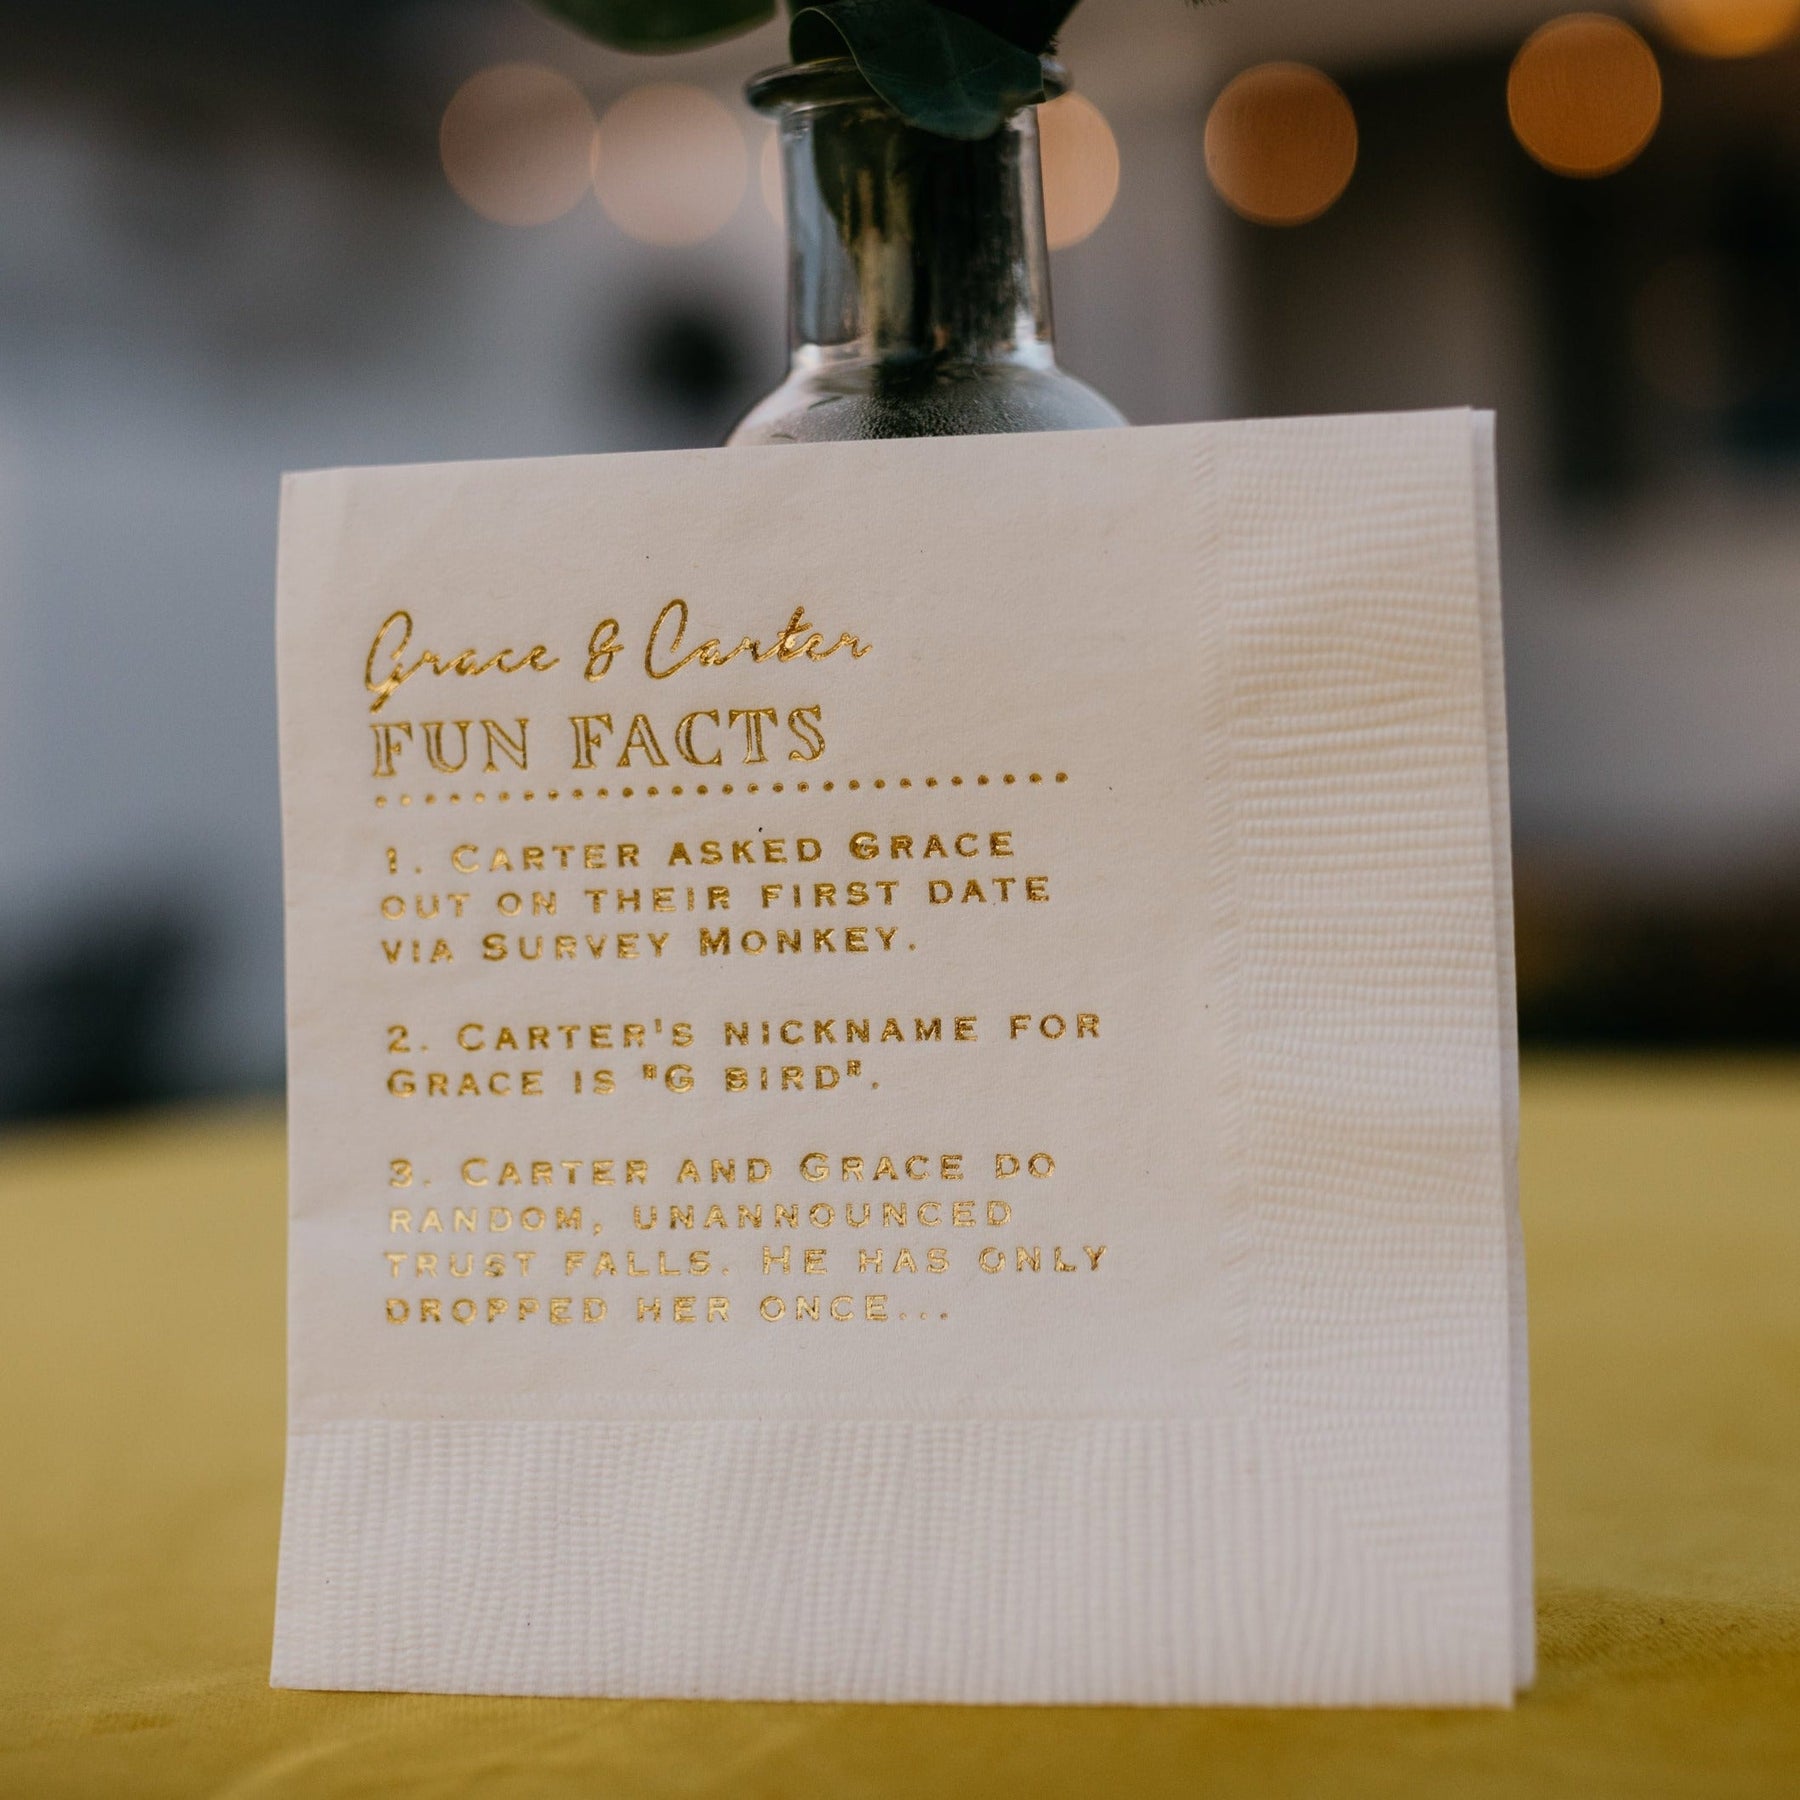 Grace & Carter
FUN FACTS
1. CARTER ASKED GRACE
OUT ON THEIR FIRST DATE
VIA SURVEY MONKEY.
2. CARTER'S NICKNAME FOR
GRACE IS "G BIRD".
3. CARTER AND GRACE DO
RANDOM, UNANNOUNCED
TRUST FALLS. HE HAS ONLY
DROPPED HER ONCE...